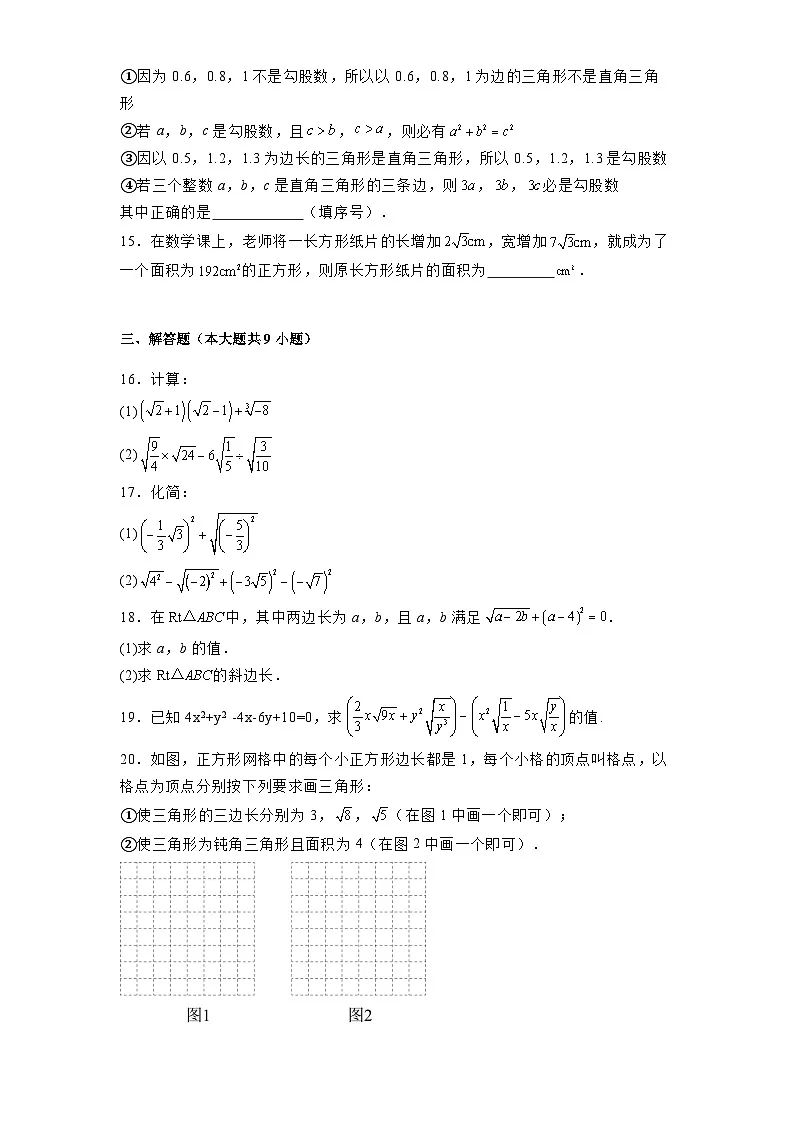 ①因为 0.6，0.8，1 不是勾股数，所以以 0.6，0.8，1 为边的三角形不是直角三角
形
②若 a，b，c 是勾股数，且 c > b，c > a，则必有 a² + b² = c²
③因以 0.5，1.2，1.3 为边长的三角形是直角三角形，所以 0.5，1.2，1.3 是勾股数
④若三个整数 a，b，c 是直角三角形的三条边，则 3a，3b，3c 必是勾股数
其中正确的是____________（填序号）．
15．在数学课上，老师将一长方形纸片的长增加 2√3cm，宽增加 7√3cm，就成为了
一个面积为 192cm² 的正方形，则原长方形纸片的面积为_________cm²．
三、解答题（本大题共 9 小题）
16．计算：
(1) (√2+1)(√2−1)+∛−8
(2) √(9/4) × √24 − 6√(1/5) ÷ √(3/10)
17．化简：
(1) (−1/3 √3)² + √((−5/3)²)
(2) √4² − √(−2)² + (−3√5)² − (−√7)²
18．在 Rt△ABC 中，其中两边长为 a，b，且 a，b 满足 √(a−2b) + (a−4)² = 0．
(1)求 a，b 的值．
(2)求 Rt△ABC 的斜边长．
19．已知 4x²+y² -4x-6y+10=0，求 (2/3 x√9x + y²√(x/y³)) − (x²√(1/x) − 5x√(y/x)) 的值．
20．如图，正方形网格中的每个小正方形边长都是 1，每个小格的顶点叫格点，以
格点为顶点分别按下列要求画三角形：
①使三角形的三边长分别为 3，√8，√5（在图 1 中画一个即可）；
②使三角形为钝角三角形且面积为 4（在图 2 中画一个即可）．
图1 图2